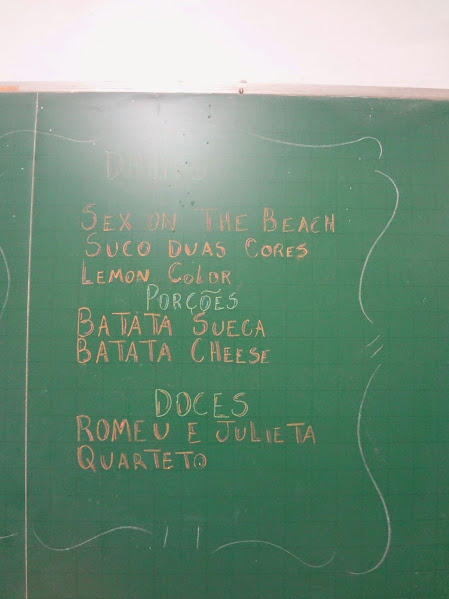 DRINKS
SEX ON THE BEACH
SUCO DUAS CORES
LEMON COLOR
PORÇÕES
BATATA SUECA
BATATA CHEESE
DOCES
ROMEU E JULIETA
QUARTETO